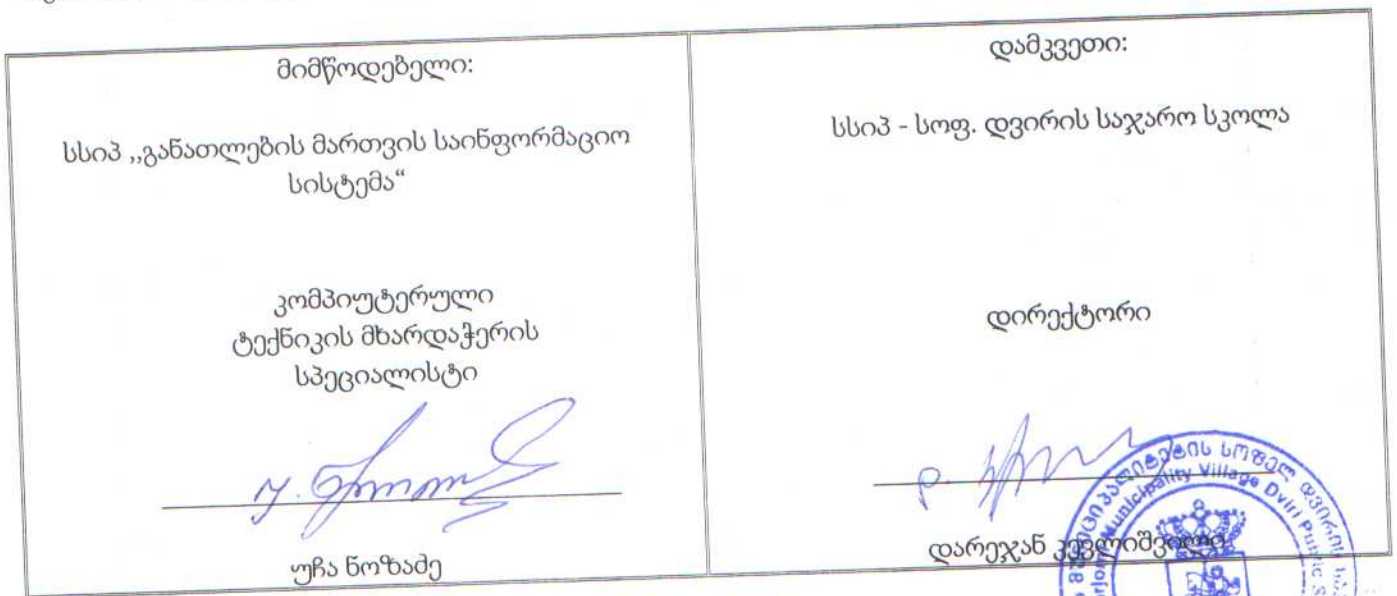 მიმწოდებელი:
სსიპ ,,განათლების მართვის საინფორმაციო
სისტემა“
კომპიუტერული
ტექნიკის მხარდაჭერის
სპეციალისტი
უჩა ნოზაძე
დამკვეთი:
სსიპ - სოფ. დვირის საჯარო სკოლა
დირექტორი
დარეჯან კევლიშვილი
მუნიციპალიტეტის სოფელ დვირის
Municipality Village Dviri Public